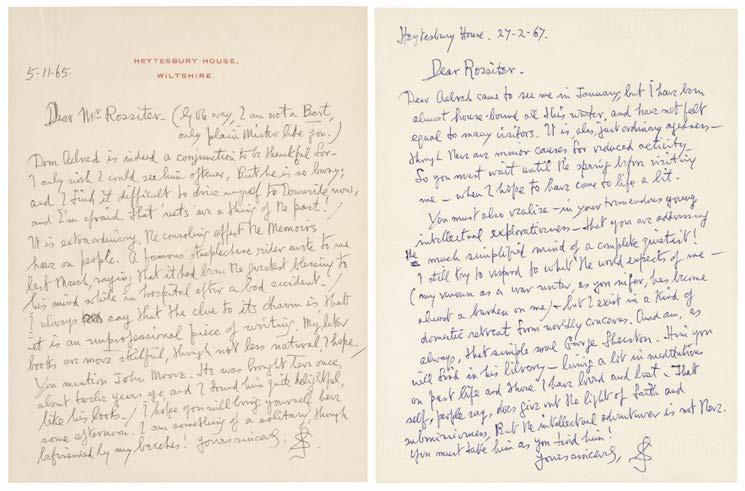 HEYTESBURY HOUSE,
WILTSHIRE.
5-11-65.
Dear Mr Rossiter - (by the way, I am not a Bart,
only plain Mister like you.)
Dom Aelred is indeed a conjunction to be thankful for -
I only wish I could see him oftener. But he is so busy;
and I find it difficult to drive myself to Downside now,
and I'm afraid that nets are a thing of the past! /
It is extraordinary, the consoling effect the Memoirs
have on people. A famous steeplechase rider wrote to me
last March, saying that it had been the greatest blessing to
his mind while in hospital after a bad accident. /
I always say that the clue to its charm is that
it is an unprofessional piece of writing. My later
books are more skilful, though not less natural, I hope. /
You mention John Moore - He was brought here once,
about twelve years ago, and I found him quite delightful,
like his books - / I hope you will bring yourself here
some afternoon. I am something of a solitary, though
befriended by my beeches! Yours sincerely,
SS
Heytesbury House. 27-2-67.
Dear Rossiter -
Dear Aelred came to see me in January, but I have been
almost house-bound all this winter, and have not felt
equal to many visitors. It is, alas, just ordinary agedness -
though there are minor causes for reduced activity -
So you must wait until the spring before visiting
me - when I hope to have come to life a bit.
You must also realize - in your tremendous young
intellectual explorativeness - that you are addressing
the much simplified mind of a complete quietist!
I still try to respond to what the world expects of me -
(my renown as a war writer, as you infer, has become
almost a burden on me) - but I exist in a kind of
domestic retreat from worldly concerns. And am, as
always, that simple soul George Sherston. Him you
will find in his library - living a lot in meditations
on past life and those I have loved and lost. That
self, people say, does give out the light of faith and
submissiveness. But the intellectual adventurer is not there.
You must take him as you find him!
Yours sincerely,
SS